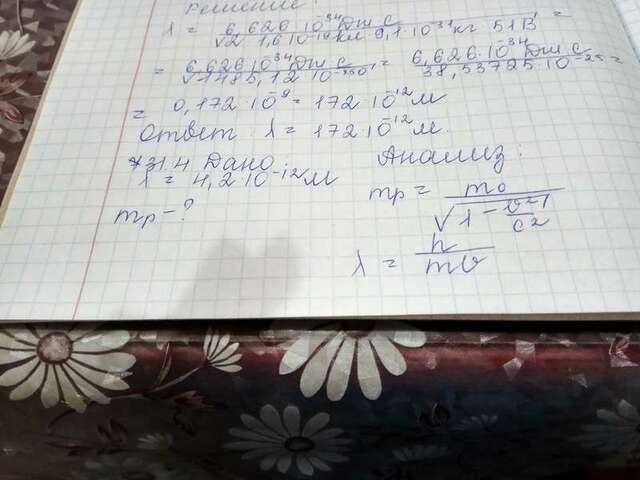 Решение:
λ = 6,620 · 10^34 Дж с / √2 · 1,6 · 10^-19 кл · 9,1 · 10^-31 кг · 51 В =
= 6,626 · 10^34 Дж с / √1485,12 · 10^-250 = 6,626 · 10^34 Дж с / 38,53725 · 10^-25 =
= 0,172 · 10^-9 = 172 · 10^-12 м
Ответ λ = 172 · 10^-12 м.
*31.4 Дано
λ = 4,2 · 10^-12 м
mp - ?
Анализ:
mp = m0 / √1 - v² / c²
λ = h / mv